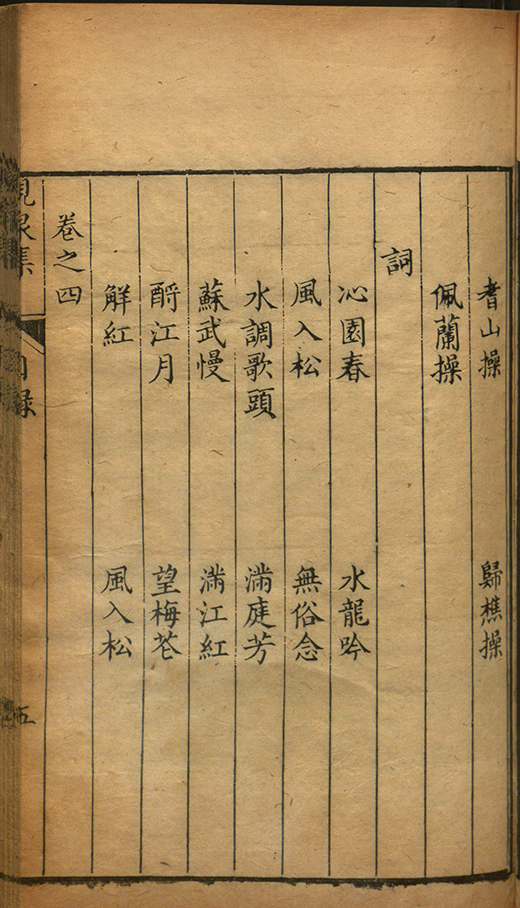 耆山操 歸樵操
佩蘭操
詞
沁園春 水龍吟
風入松 無俗念
水調歌頭 滿庭芳
蘇武慢 滿江紅
酹江月 望梅花
解紅 風入松
卷之四
峴泉集 目録 五